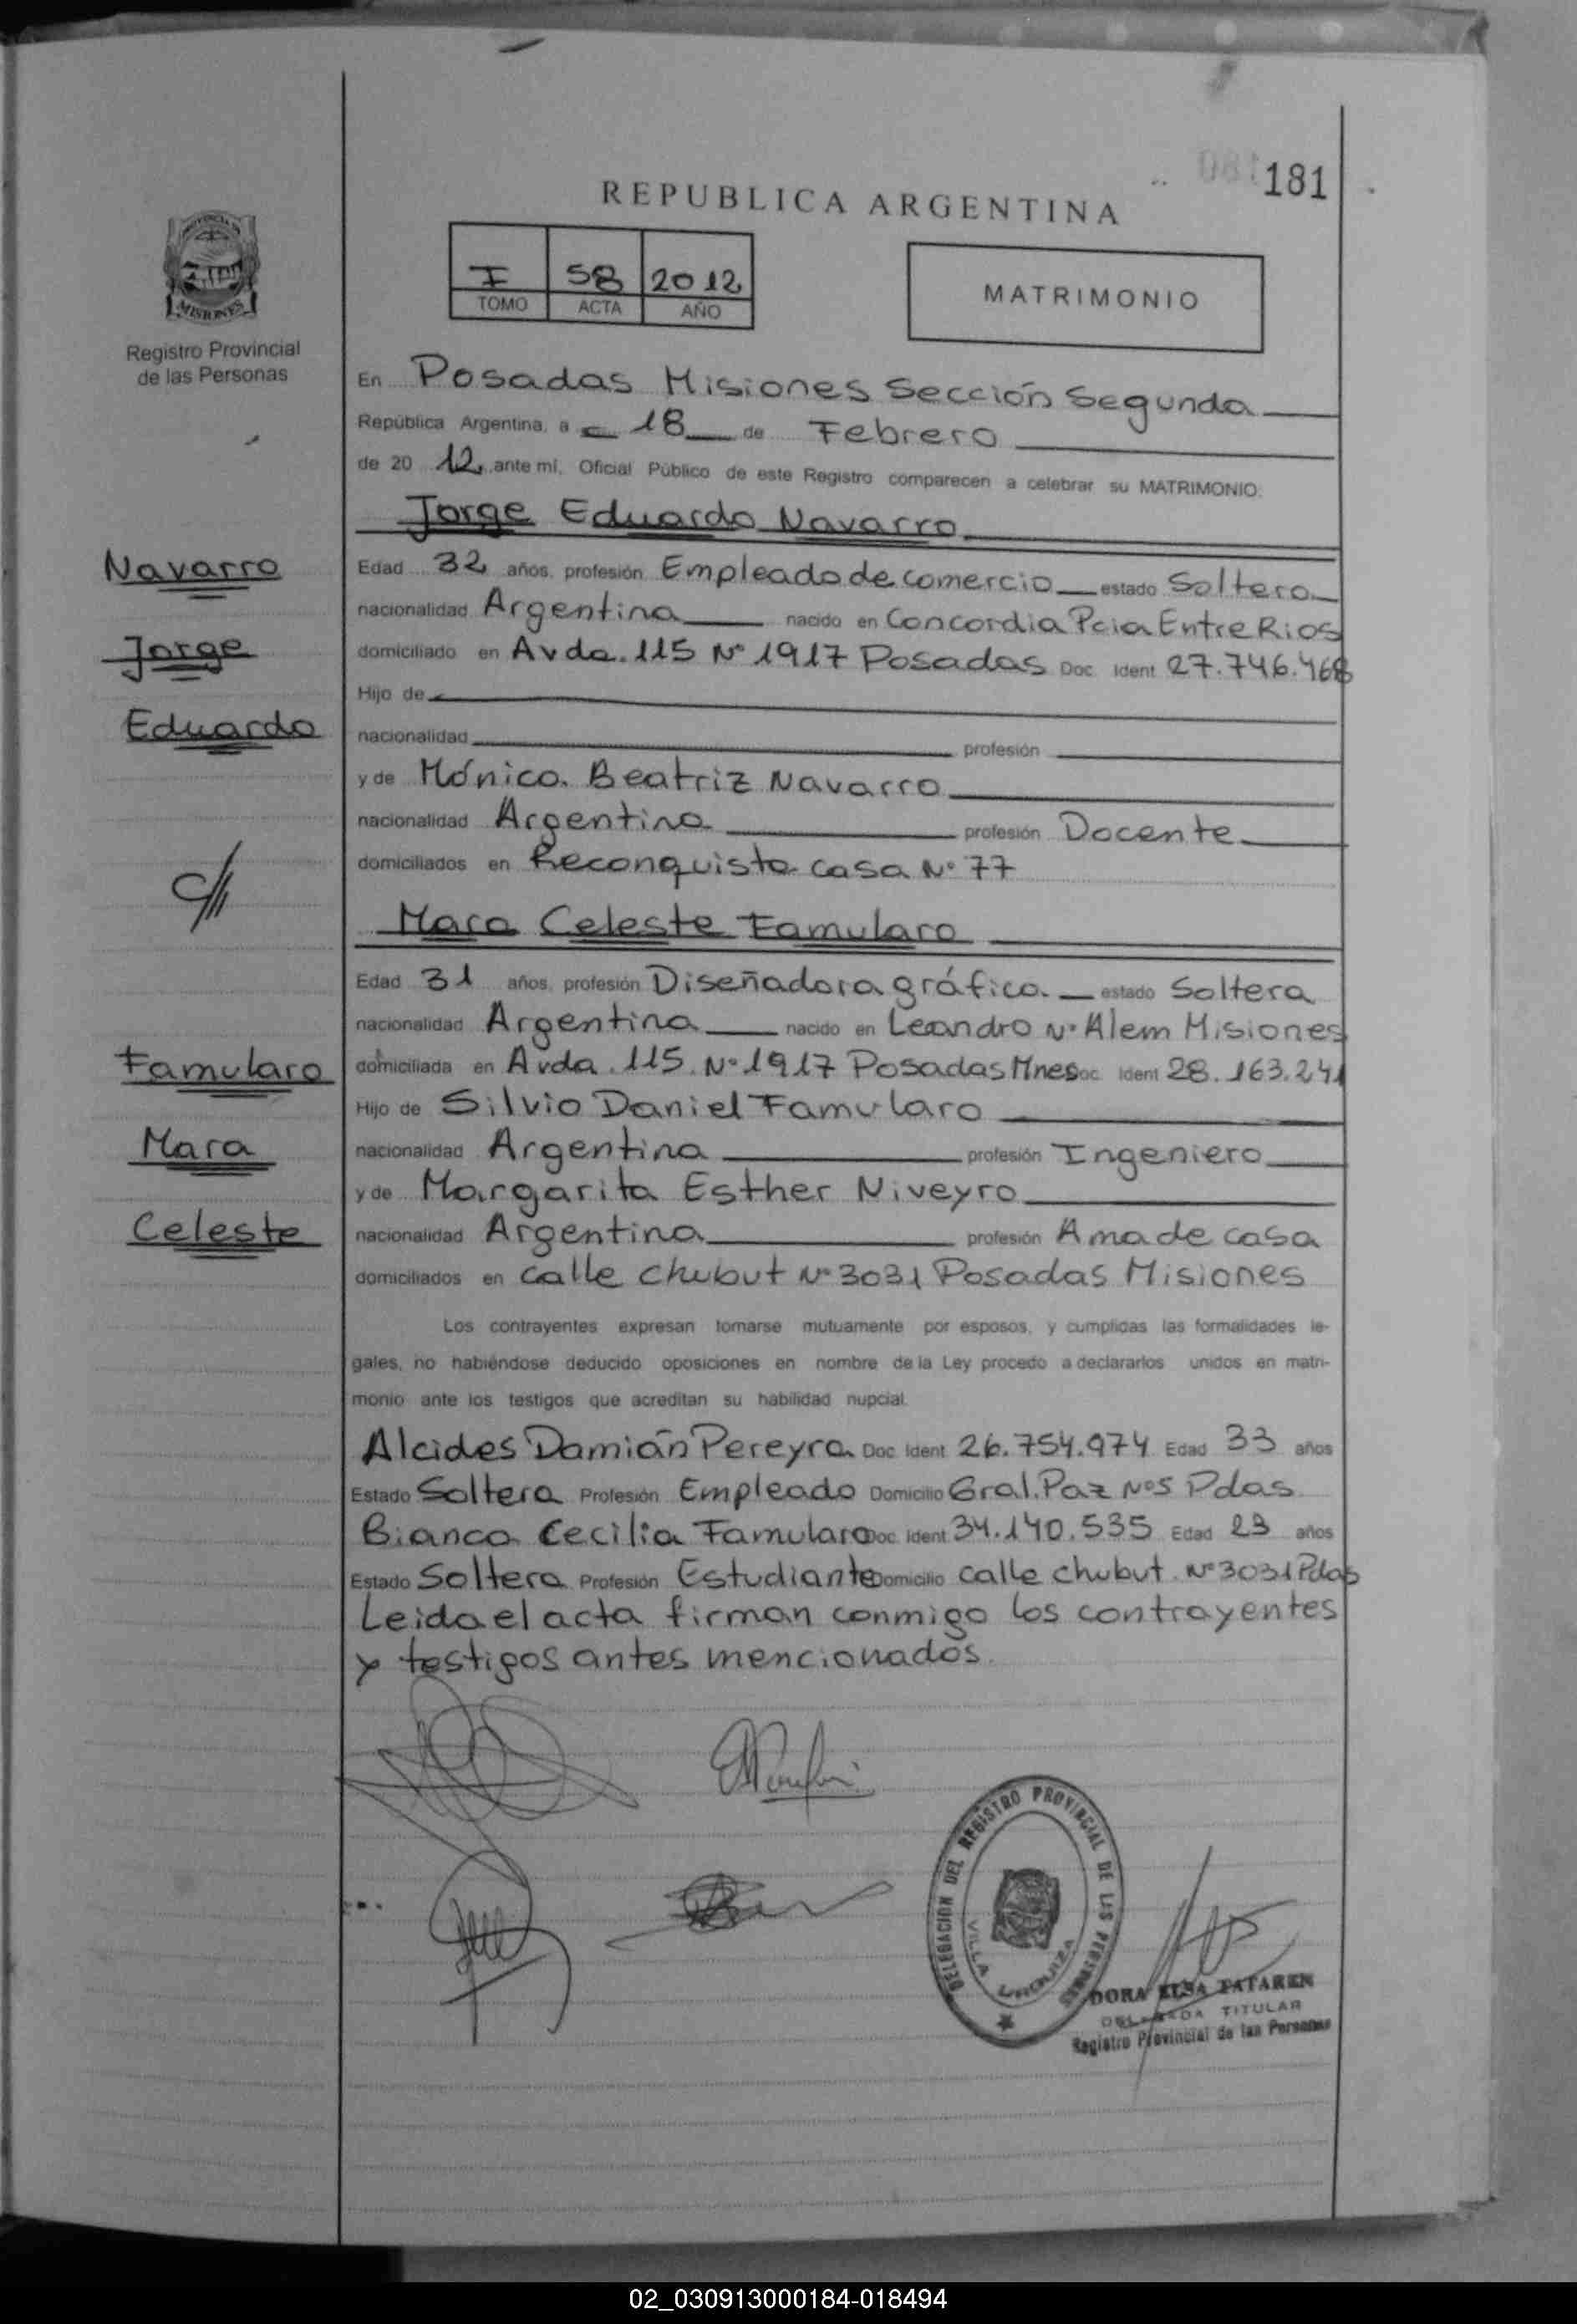 181
REPUBLICA ARGENTINA
I 58 2012
TOMO ACTA AÑO
MATRIMONIO
MISIONES
Registro Provincial
de las Personas
En Posadas Misiones Sección Segunda
República Argentina, a 18 de Febrero
de 20 12 ante mí, Oficial Público de este Registro comparecen a celebrar su MATRIMONIO:
Jorge Eduardo Navarro
Navarro
Jorge
Eduardo
Edad 32 años, profesión Empleado de comercio estado Soltero
nacionalidad Argentina nacido en Concordia Pcia Entre Rios
domiciliado en Avda. 115 Nº 1917 Posadas Doc. Ident 27.746.468
Hijo de
nacionalidad profesión
y de Mónica Beatriz Navarro
nacionalidad Argentina profesión Docente
domiciliados en Reconquista casa Nº 77
Mara Celeste Famularo
Famularo
Mara
Celeste
Edad 31 años, profesión Diseñadora gráfica estado Soltera
nacionalidad Argentina nacido en Leandro N. Alem Misiones
domiciliada en Avda. 115. Nº 1917 Posadas Mnes Doc. Ident 28.163.241
Hijo de Silvio Daniel Famularo
nacionalidad Argentina profesión Ingeniero
y de Margarita Esther Niveyro
nacionalidad Argentina profesión Ama de casa
domiciliados en calle chubut Nº 3031 Posadas Misiones
Los contrayentes expresan tomarse mutuamente por esposos, y cumplidas las formalidades le-
gales, no habiéndose deducido oposiciones en nombre de la Ley procedo a declararlos unidos en matri-
monio ante los testigos que acreditan su habilidad nupcial.
Alcides Damián Pereyra Doc. Ident 26.754.974 Edad 33 años
Estado Soltera Profesión Empleado Domicilio Gral. Paz Nº 5 Pdas.
Bianca Cecilia Famularo Doc. Ident 34.140.535 Edad 23 años
Estado Soltera Profesión Estudiante Domicilio calle chubut Nº 3031 Pdas
Leida el acta firman conmigo los contrayentes
y testigos antes mencionados.
DELEGACION DEL REGISTRO PROVINCIAL DE LAS PERSONAS
VILLA URQUIZA
DORA ELSA TATAREN
DELEGADA TITULAR
Registro Provincial de las Personas
02_030913000184-018494